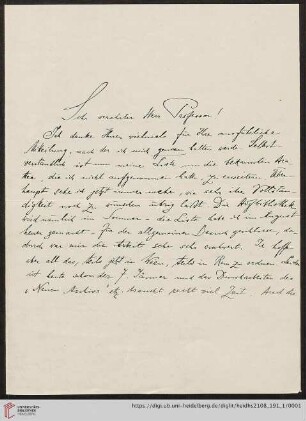 Sehr verehrter Herr Professor!
Ich danke Ihnen vielmals für Ihre ausführliche
Mitteilung, nach der ich mich genau halten werde. Selbst-
verständlich ist meine Liste die bekannten
die ich nicht aufgenommen habe, zu erweitern. Über-
haupt sehe ich jetzt immer mehr, wie sehr ihre Vollstän-
digkeit noch zu wünschen übrig läßt. Die Hofbibliothek
war nämlich im Sommer – die Liste habe ich im August
gemacht – für den allgemeinen Besuch geschlossen, da-
durch war mir die Arbeit sehr erschwert. Ich hoffe
aber all das, teils jetzt in Wien, teils in Rom zu ordnen. Leider
ist heute schon der 7. Jänner und das Durcharbeiten des
„Neuen Archivs" etz. braucht recht viel Zeit. Auch der
UNIVERSITÄTS-
BIBLIOTHEK
HEIDELBERG
https://digi.ub.uni-heidelberg.de/diglit/heidhs2108_191_1/0001